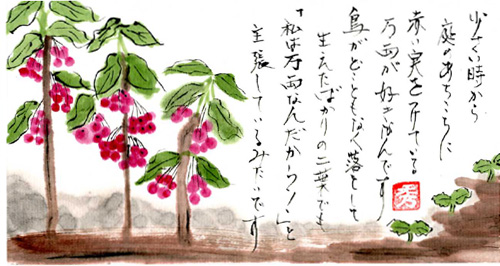 小さい時から
庭のあちこちに
赤い実をつけている
万両が好きなんです
鳥がどこともなく落として
生えたばかりの二葉でも
「私は万両なんだから！」と
主張しているみたいです
秀